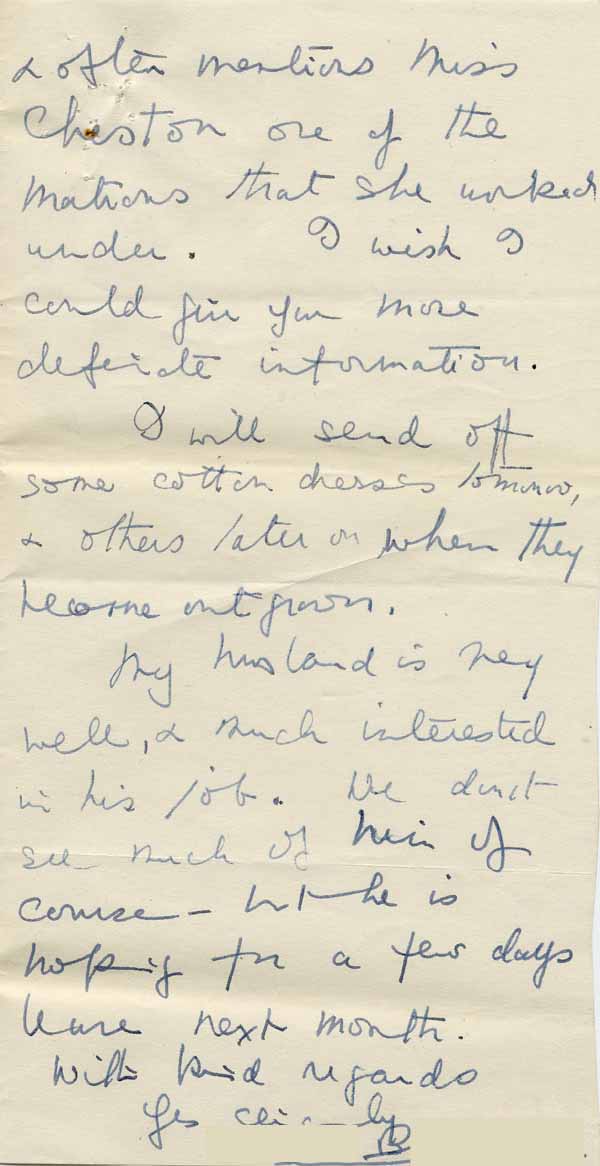 & often mentions Miss
Cheston one of the
Matrons that she worked
under. I wish I
could give you more
definite information.
I will send off
some cotton dresses tomorrow,
& others later on when they
become outgrown.
My husband is very
well, & much interested
in his job. We don't
see much of him of
course - but he is
hoping for a few days
leave next month.
With kind regards
Yrs